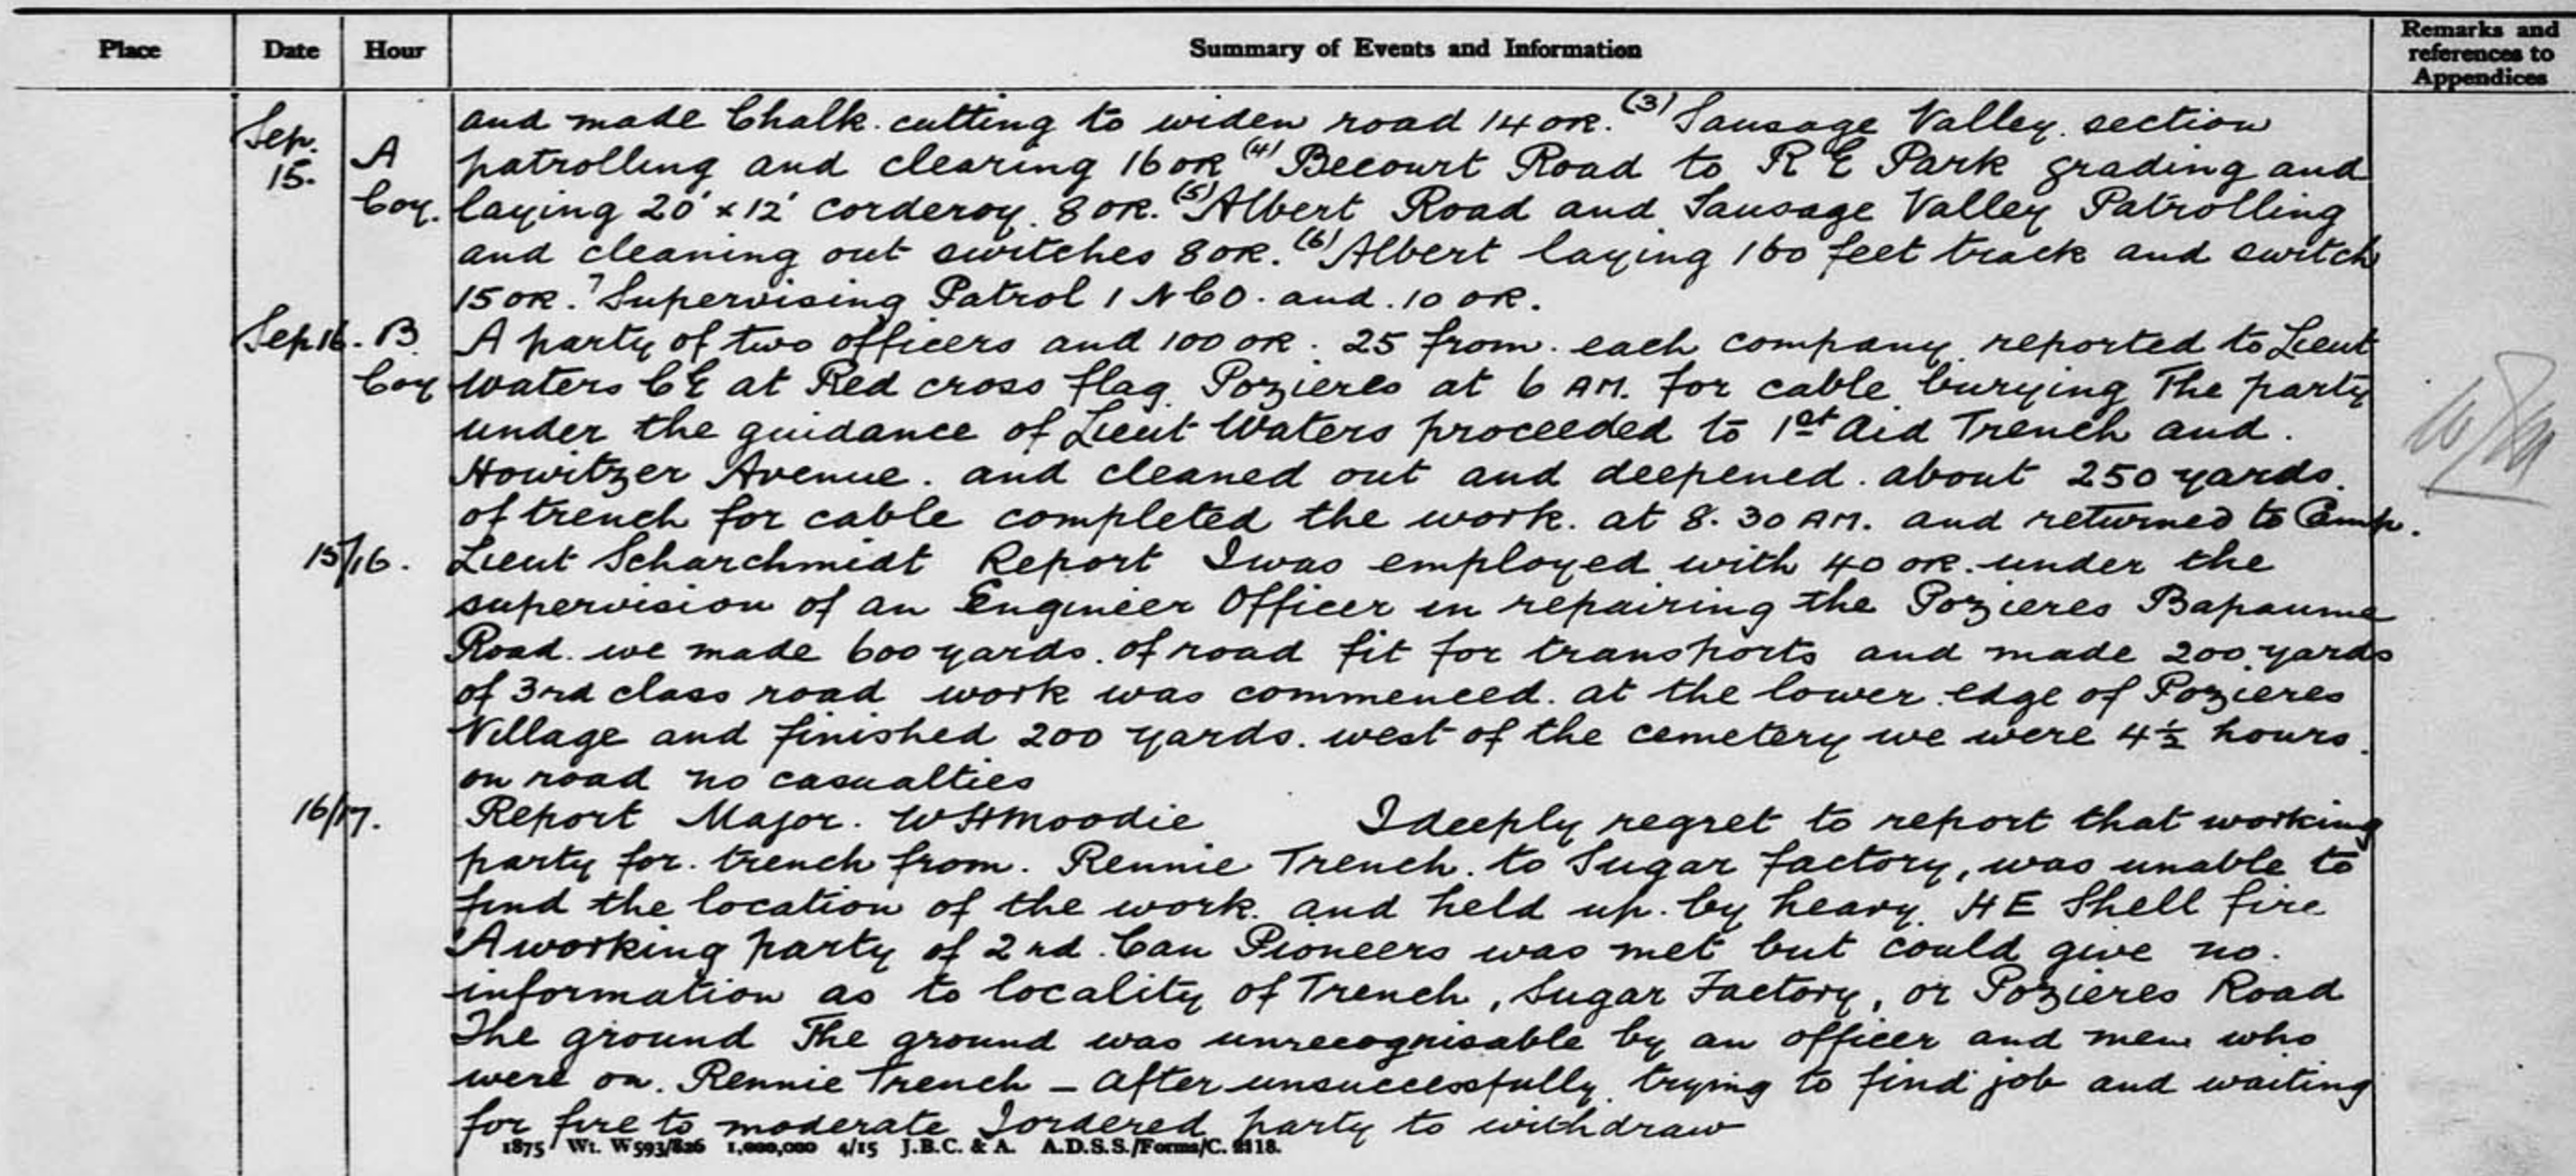 Place Date Hour Summary of Events and Information Remarks and references to Appendices
Sep. 15. A Coy. and made Chalk. cutting to widen road 14 OR. (3) Sausage Valley. section
patrolling and clearing 16 OR (4) Becourt Road to R E Park grading and
laying 20' x 12' corderoy. 8 OR. (5) Albert Road and Sausage Valley Patrolling
and cleaning out switches 8 OR. (6) Albert laying 160 feet track and switch
15 OR. 7 Supervising Patrol 1 NCO. and. 10 OR.
Sep 16. B Coy A party of two officers and 100 OR. 25 from. each company. reported to Lieut
Waters CE at Red cross flag. Pozieres at 6 AM. for cable burying The party
under the guidance of Lieut Waters proceeded to 1st Aid Trench and.
Howitzer Avenue. and cleaned out and deepened. about 250 yards.
of trench for cable completed the work. at 8.30 AM. and returned to Camp.
15/16. Lieut Scharchmidt Report I was employed with 40 OR. under the
supervision of an Engineer Officer in repairing the Pozieres Bapaume
Road. we made 600 yards. of road fit for transports and made 200 yards
of 3rd class road work was commenced. at the lower edge of Pozieres
Village and finished 200 yards. west of the cemetery we were 4½ hours.
on road no casualties
16/17. Report Major. W H Moodie I deeply regret to report that working
party for. trench from. Rennie Trench. to Sugar factory, was unable to
find the location of the work. and held up. by heavy. H E Shell fire
A working party of 2nd. Can Pioneers was met but could give no.
information as to locality of Trench, Sugar Factory, or Pozieres Road
The ground The ground was unrecognisable by an officer and men who
were on. Rennie Trench – after unsuccessfully. trying to find job and waiting
for fire to moderate I ordered party to withdraw
1875 Wt. W593/826 1,000,000 4/15 J.B.C. & A. A.D.S.S./Forms/C. 2118.